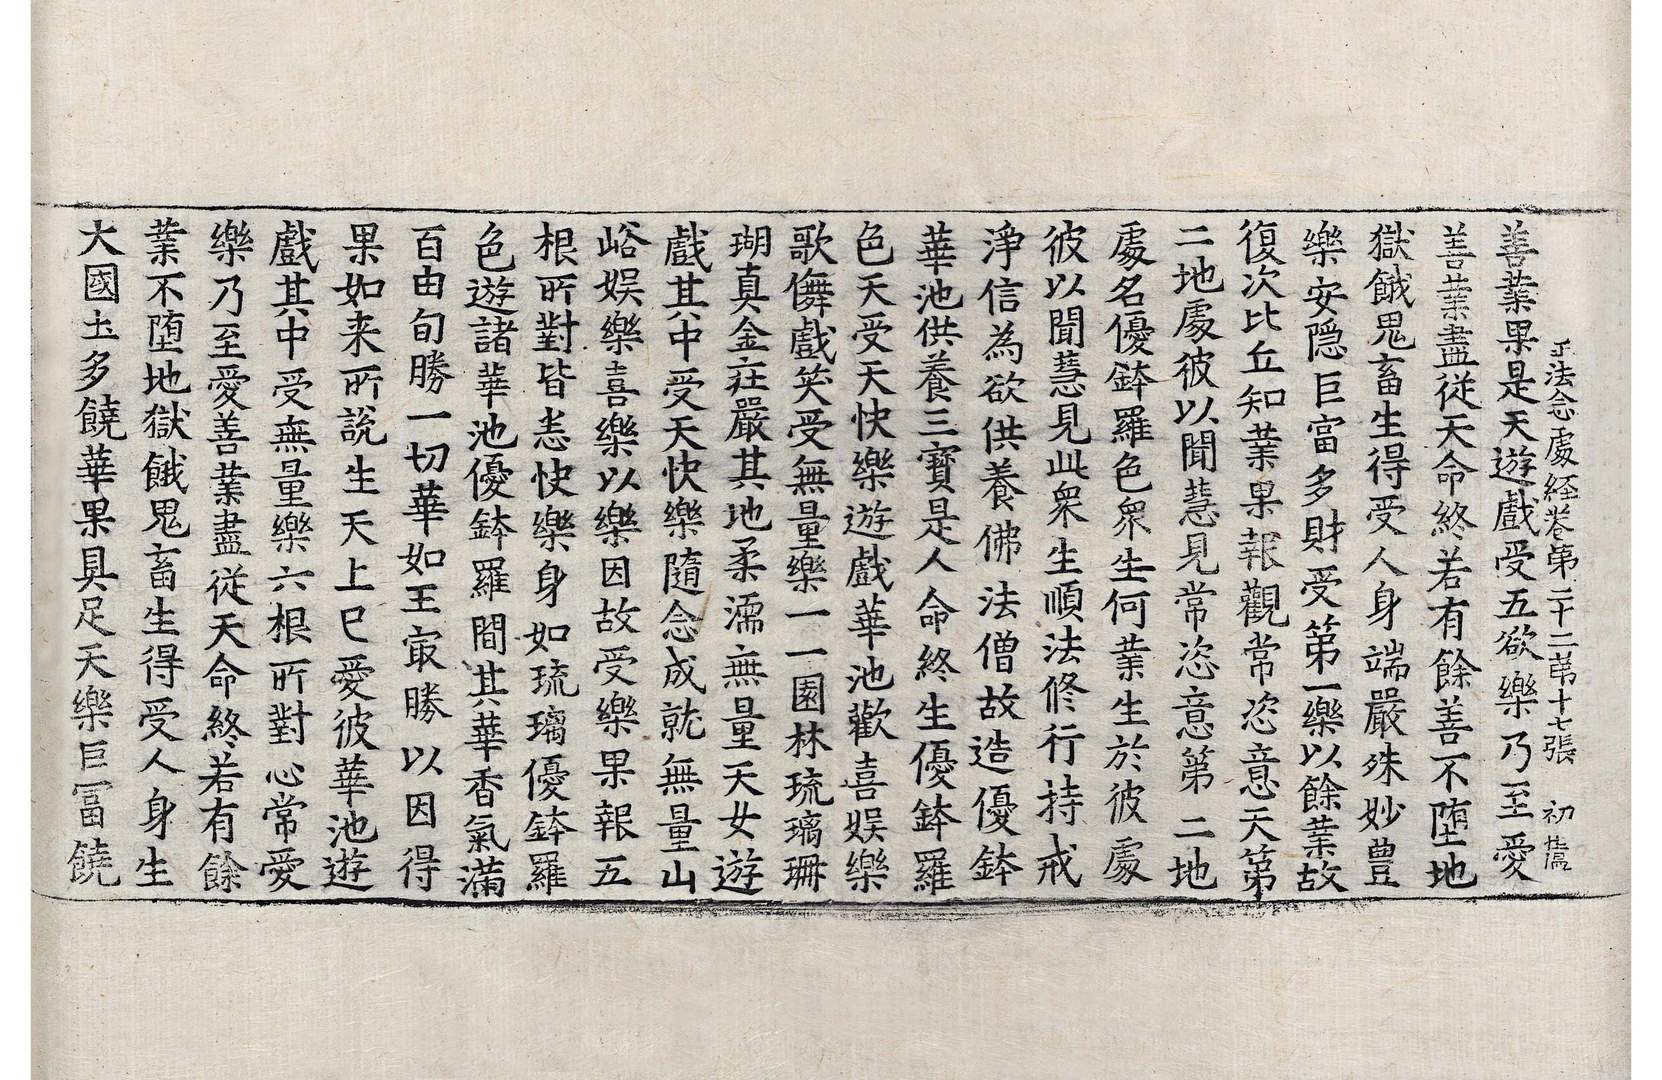 正法念處経卷第二十二第十七張 初
善業果是天遊戲受五欲樂乃至愛
善業盡從天命終若有餘善不堕地
獄餓鬼畜生得受人身端嚴殊妙豊
樂安隐巨富多財受第一樂以餘業故
復次比丘知業果報觀常恣意天第
二地處彼以聞慧見常恣意第二地
處名優鉢羅色衆生何業生於彼處
彼以聞慧見此衆生順法修行持戒
淨信為欲供養佛法僧故造優鉢
華池供養三寶是人命終生優鉢羅
色天受天快樂遊戲華池歡喜娱樂
歌儛戲笑受無量樂一一園林琉璃珊
瑚真金庄嚴其地柔濡無量天女遊
戲其中受天快樂隨念成就無量山
峪娱樂喜樂以樂因故受樂果報五
根所對皆悉快樂身如琉璃優鉢羅
色遊諸華池優鉢羅間其華香氣滿
百由旬勝一切華如王㝡勝以因得
果如来所說生天上已愛彼華池遊
戲其中受無量樂六根所對心常愛
樂乃至愛善業盡從天命終若有餘
業不堕地獄餓鬼畜生得受人身生
大國土多饒華果具足天樂巨冨饒